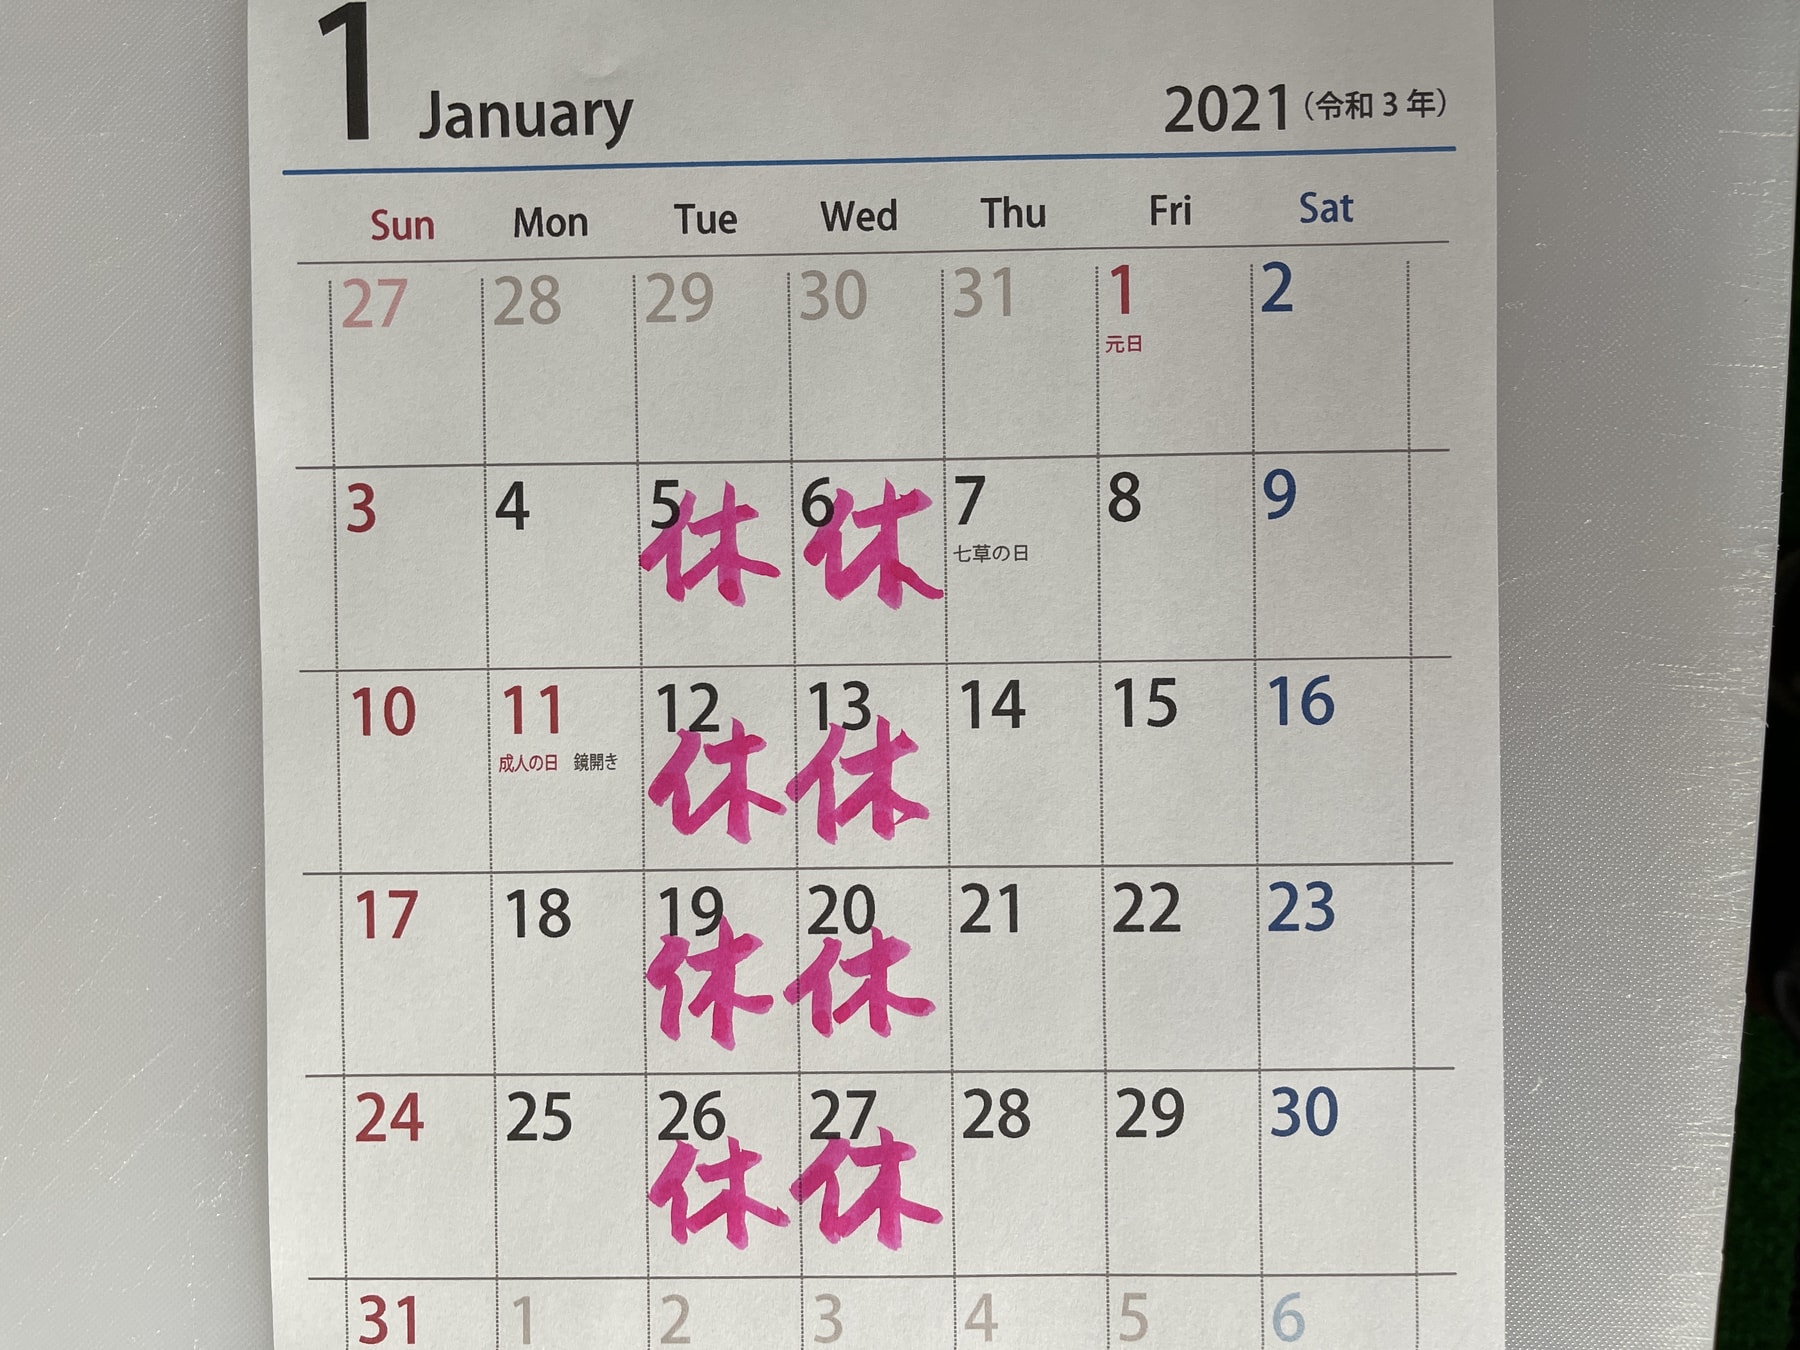 1 January 2021 (令和3年)
Sun Mon Tue Wed Thu Fri Sat
27 28 29 30 31 1 2
元日
3 4 5 6 7 8 9
休 休 七草の日
10 11 12 13 14 15 16
成人の日 鏡開き 休 休
17 18 19 20 21 22 23
休 休
24 25 26 27 28 29 30
休 休
31 1 2 3 4 5 6